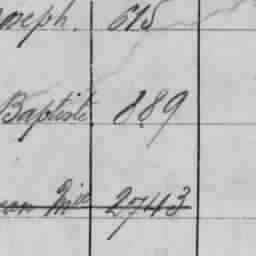 oseph. 615
Baptiste 889
2743